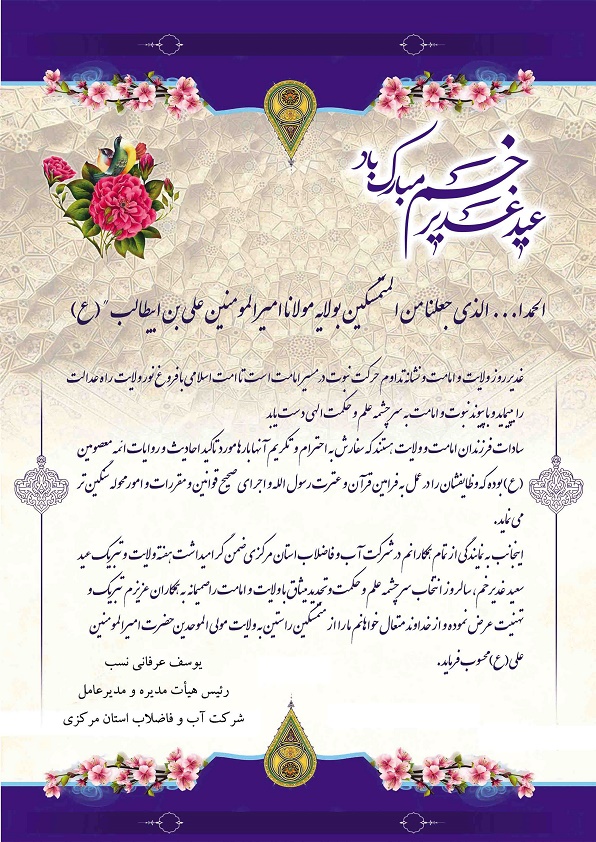 عید غدیر خم مبارک باد
الحمدا... الذی جعلنا من المتمسکین بولایه مولانا امیرالمومنین علی بن ابیطالب " (ع)
غدیر روز ولایت و امامت و نشانه تداوم حرکت نبوت در مسیر امامت است تا امت اسلامی با فروغ نور ولایت راه عدالت
را بپیماید و با پیوند نبوت و امامت به سرچشمه علم و حکمت الهی دست یابد
سادات فرزندان امامت و ولایت هستند که سفارش به احترام و تکریم آنها بارها مورد تاکید احادیث و روایات ائمه معصومین
(ع) بوده که وظایفشان را در عمل به فرامین قرآن و عترت رسول الله و اجرای صحیح قوانین و مقررات و امور محوله سنگین تر
می نماید.
اینجانب به نمایندگی از تمام همکارانم در شرکت آب و فاضلاب استان مرکزی ضمن گرامیداشت هفته ولایت و تبریک عید
سعید غدیر خم، سالروز انتخاب سرچشمه علم و حکمت و تجدید میثاق با ولایت و امامت را صمیمانه به همکاران عزیزم تبریک و
تهنیت عرض نموده و از خداوند متعال خواهانم ما را از متمسکین راستین به ولایت مولی الموحدین حضرت امیرالمومنین
علی (ع) محسوب فرماید.
یوسف عرفانی نسب
رئیس هیأت مدیره و مدیرعامل
شرکت آب و فاضلاب استان مرکزی